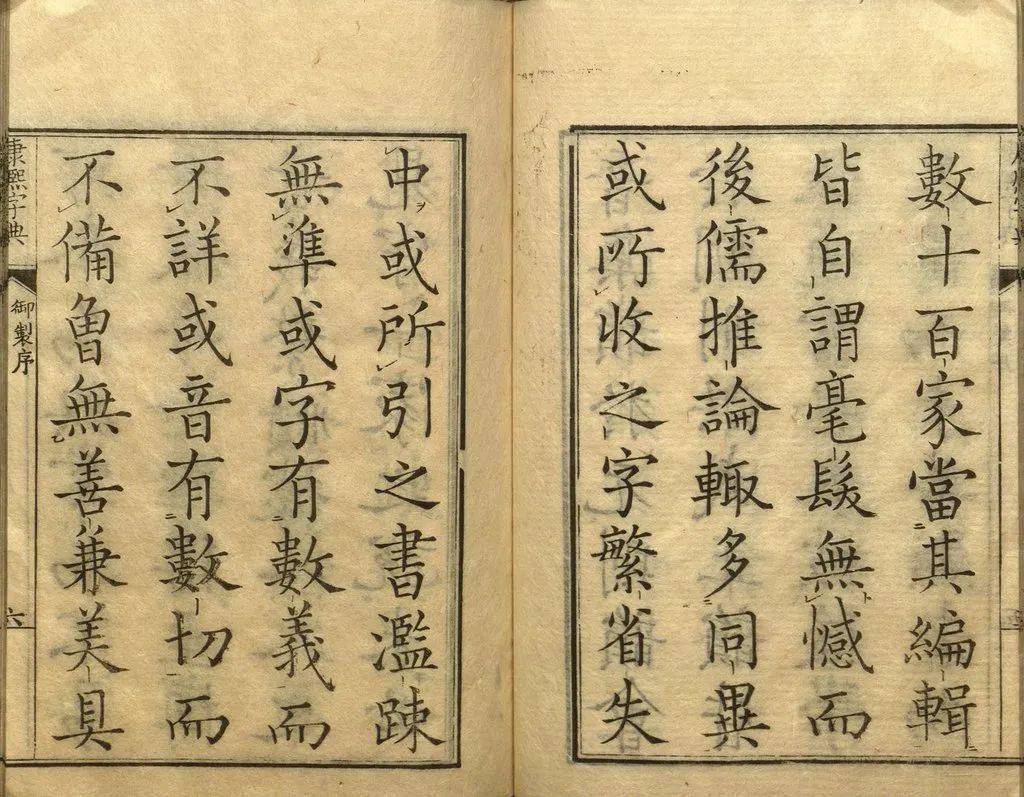 數十百家當其編輯
皆自謂毫髮無憾而
後儒推論輙多同異
或所收之字繁省失
中或所引之書濫踈
無準或字有數義而
不詳或音有數切而
不備曾無善兼美具
康熙字典
御製序
六